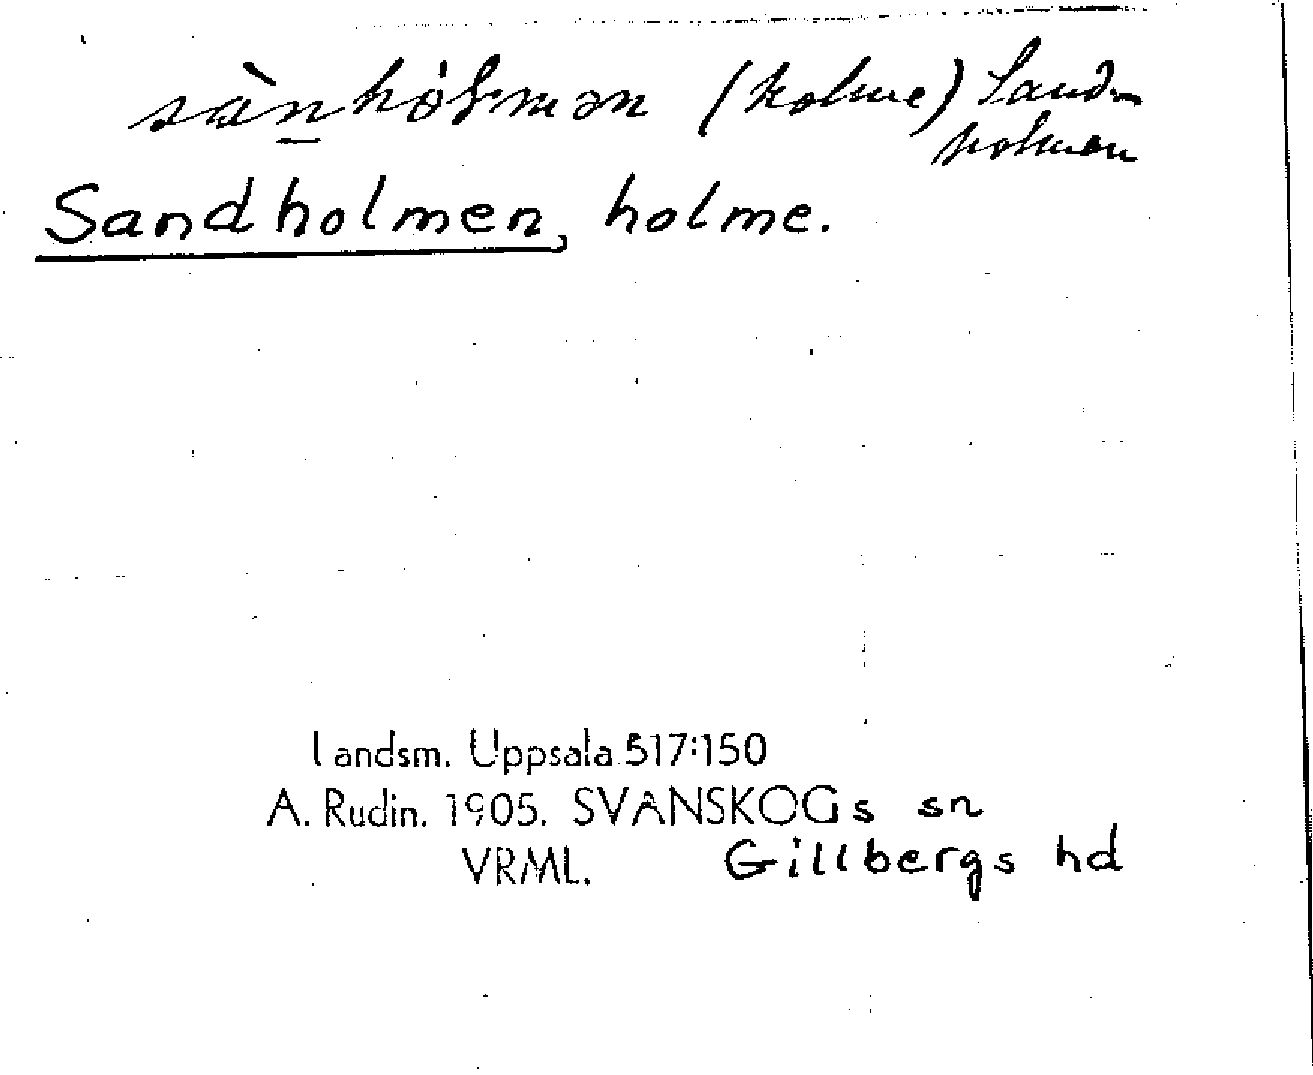 sànhólmən (holme) Sand-
holmen
Sandholmen, holme.
Landsm. Uppsala 517:150
A. Rudin. 1905. SVANSKOGs sn
VRML. Gillbergs hd